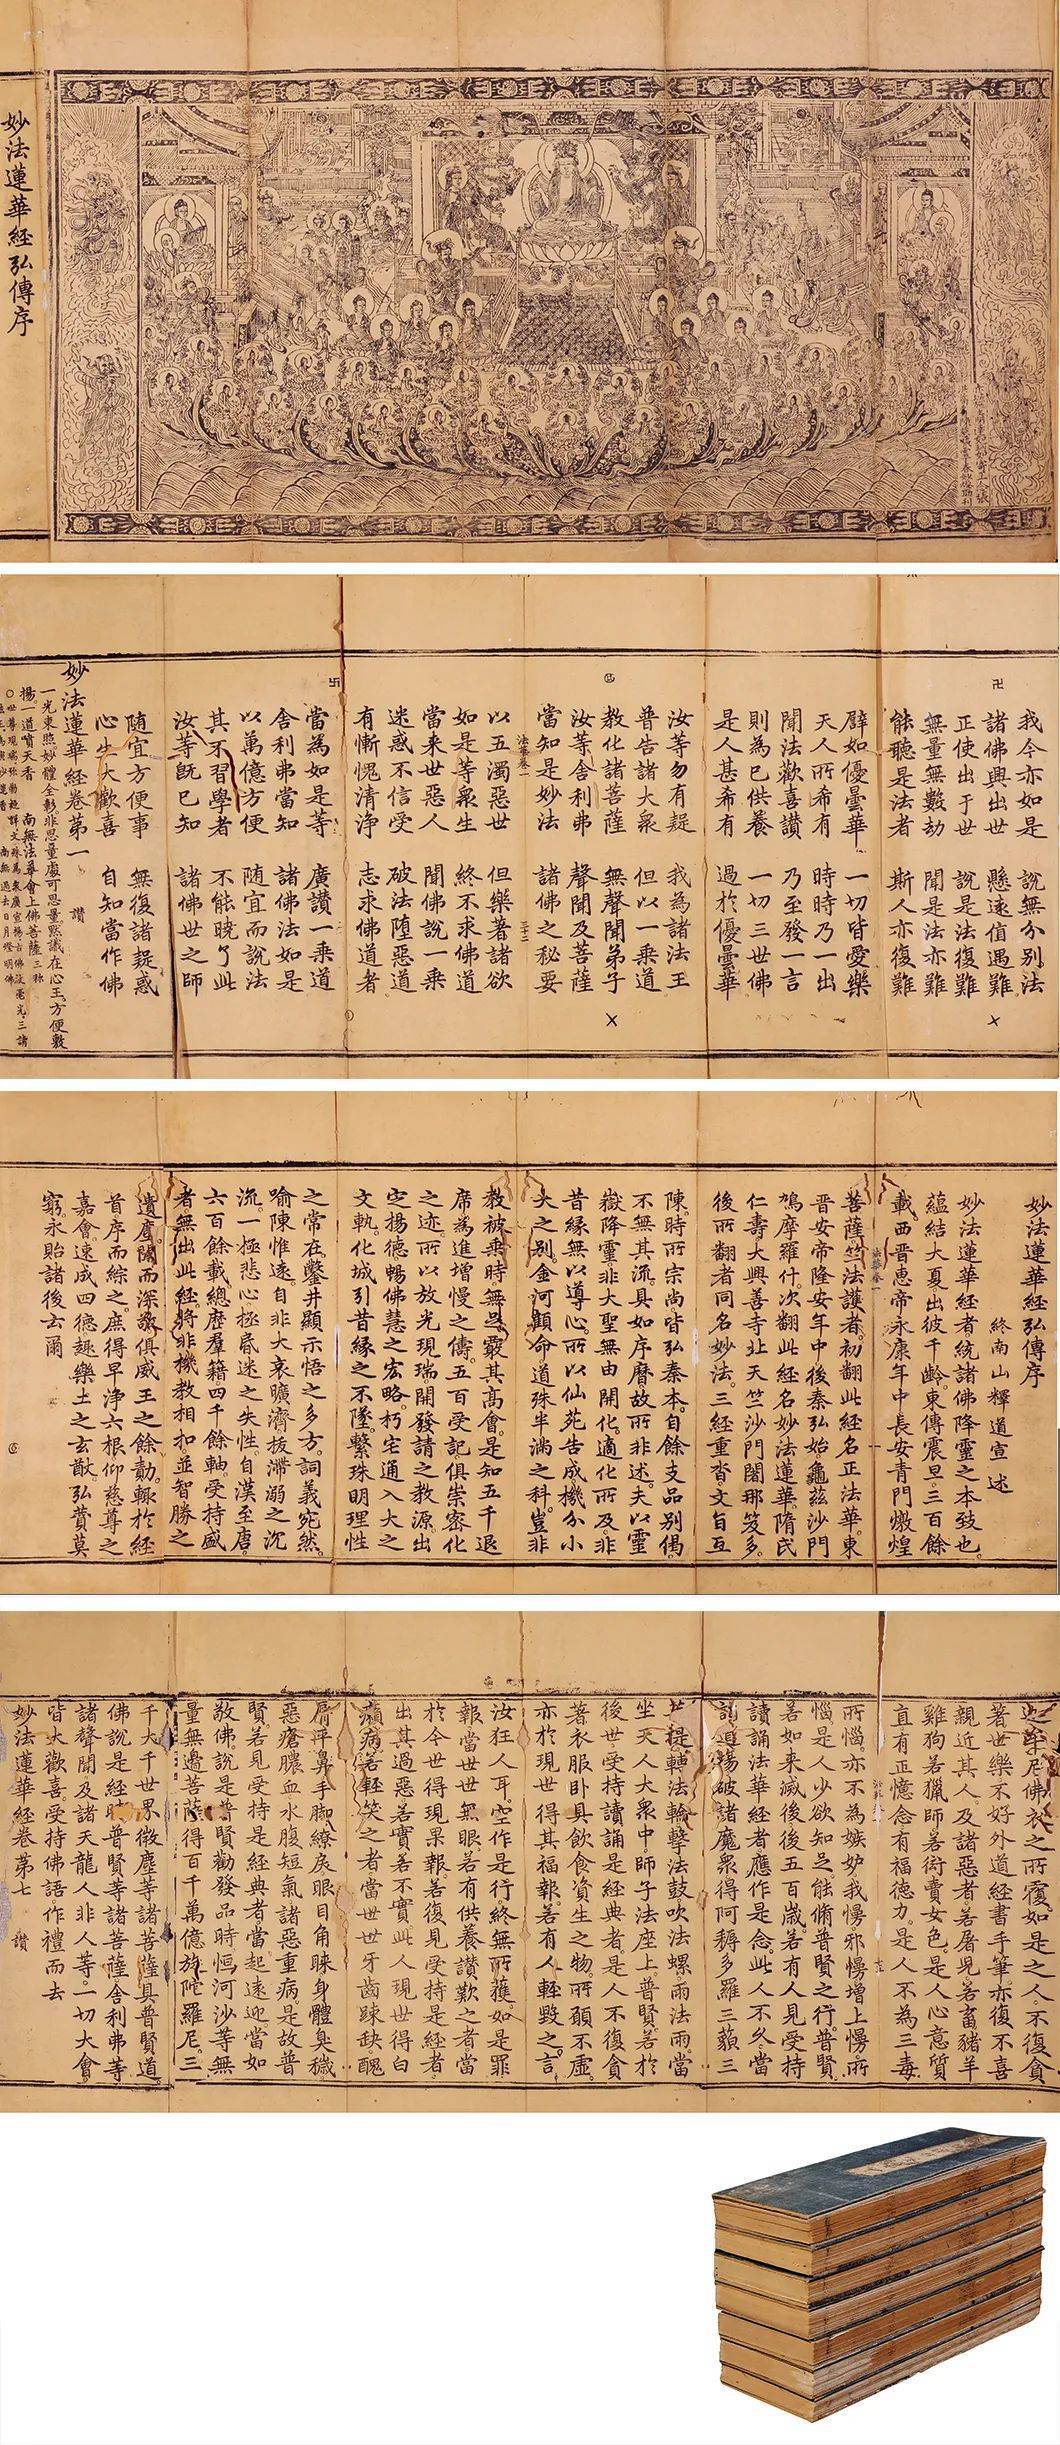 妙法蓮華經弘傳序
我今亦如是 說無分別法
諸佛興出世 懸遠值遇難
正使出于世 說是法復難
無量無數劫 聞是法亦難
能聽是法者 斯人亦復難
譬如優曇華 一切皆愛樂
天人所希有 時時乃一出
聞法歡喜讚 乃至發一言
則為已供養 一切三世佛
是人甚希有 過於優曇華
汝等勿有疑 我為諸法王
普告諸大眾 但以一乘道
教化諸菩薩 無聲聞弟子
汝等舍利弗 聲聞及菩薩
當知是妙法 諸佛之秘要
法華卷一
以五濁惡世 但樂著諸欲
如是等眾生 終不求佛道
當來世惡人 聞佛說一乘
迷惑不信受 破法墮惡道
有慚愧清淨 志求佛道者
當為如是等 廣讚一乘道
舍利弗當知 諸佛法如是
以萬億方便 隨宜而說法
其不習學者 不能曉了此
汝等既已知 諸佛世之師
隨宜方便事 無復諸疑惑
心生大歡喜 自知當作佛
妙法蓮華經卷第一 讚
一光東照妙體全彰非思量處可思量默議在心王方便敷
揚一道寶天香 南無法華會上佛菩薩 三稱
妙法蓮華經弘傳序
終南山釋道宣述
妙法蓮華經者統諸佛降靈之本致也
蘊結大夏出彼千齡東傳震旦三百餘
載西晉惠帝永康年中長安青門燉煌
菩薩竺法護者初翻此經名正法華東
晉安帝隆安年中後秦弘始龜茲沙門
鳩摩羅什次翻此經名妙法蓮華隋氏
仁壽大興善寺北天竺沙門闍那笈多
後所翻者同名妙法三經重沓文旨互
陳時所宗尚皆弘秦本自餘支品別偈
不無其流具如序曆故所非述夫以靈
嶽降靈非大聖無由開化適化所及非
昔緣無以導心所以仙苑告成機分小
大之別金河顧命道殊半滿之科豈非
教被乘時無足覈其高會是知五千退
席為進增慢之儔五百受記俱崇密化
之迹所以放光現瑞開發請之教源出
定揚德暢佛慧之宏略朽宅通入大之
文軌化城引昔緣之不墜繫珠明理性
之常在鑿井顯示悟之多方詞義宛然
喻陳惟遠自非大哀曠濟拔滯溺之沉
流一極悲心拯昏迷之失性自漢至唐
六百餘載總歷羣籍四千餘軸受持盛
者無出此經將非機教相扣並智勝之
遺塵聞而深敬俱威王之餘勣輒於經
首序而綜之庶得早淨六根仰慈尊之
嘉會速成四德趣樂土之玄猷弘贊莫
窮永貽諸後云爾
迦牟尼佛衣之所覆如是之人不復貪
著世樂不好外道經書手筆亦復不喜
親近其人及諸惡者若屠兒若畜豬羊
雞狗若獵師若衒賣女色是人心意質
直有正憶念有福德力是人不為三毒
所惱亦不為嫉妒我慢邪慢增上慢所
惱是人少欲知足能脩普賢之行普賢
若如來滅後後五百歲若有人見受持
讀誦法華經者應作是念此人不久當
詣道場破諸魔眾得阿耨多羅三藐三
菩提轉法輪擊法鼓吹法螺雨法雨當
坐天人大眾中師子法座上普賢若於
後世受持讀誦是經典者是人不復貪
著衣服臥具飲食資生之物所願不虛
亦於現世得其福報若有人輕毀之言
汝狂人耳空作是行終無所獲如是罪
報當世世無眼若有供養讚歎之者當
於今世得現果報若復見受持是經者
出其過惡若實若不實此人現世得白
癩病若輕笑之者當世世牙齒踈缺醜
脣平鼻手腳繚戾眼目角睞身體臭穢
惡瘡膿血水腹短氣諸惡重病是故普
賢若見受持是經典者當起遠迎當如
敬佛說是普賢勸發品時恒河沙等無
量無邊菩薩得百千萬億旋陀羅尼三
千大千世界微塵等諸菩薩具普賢道
佛說是經時普賢等諸菩薩舍利弗等
諸聲聞及諸天龍人非人等一切大會
皆大歡喜受持佛語作禮而去
妙法蓮華經卷第七 讚